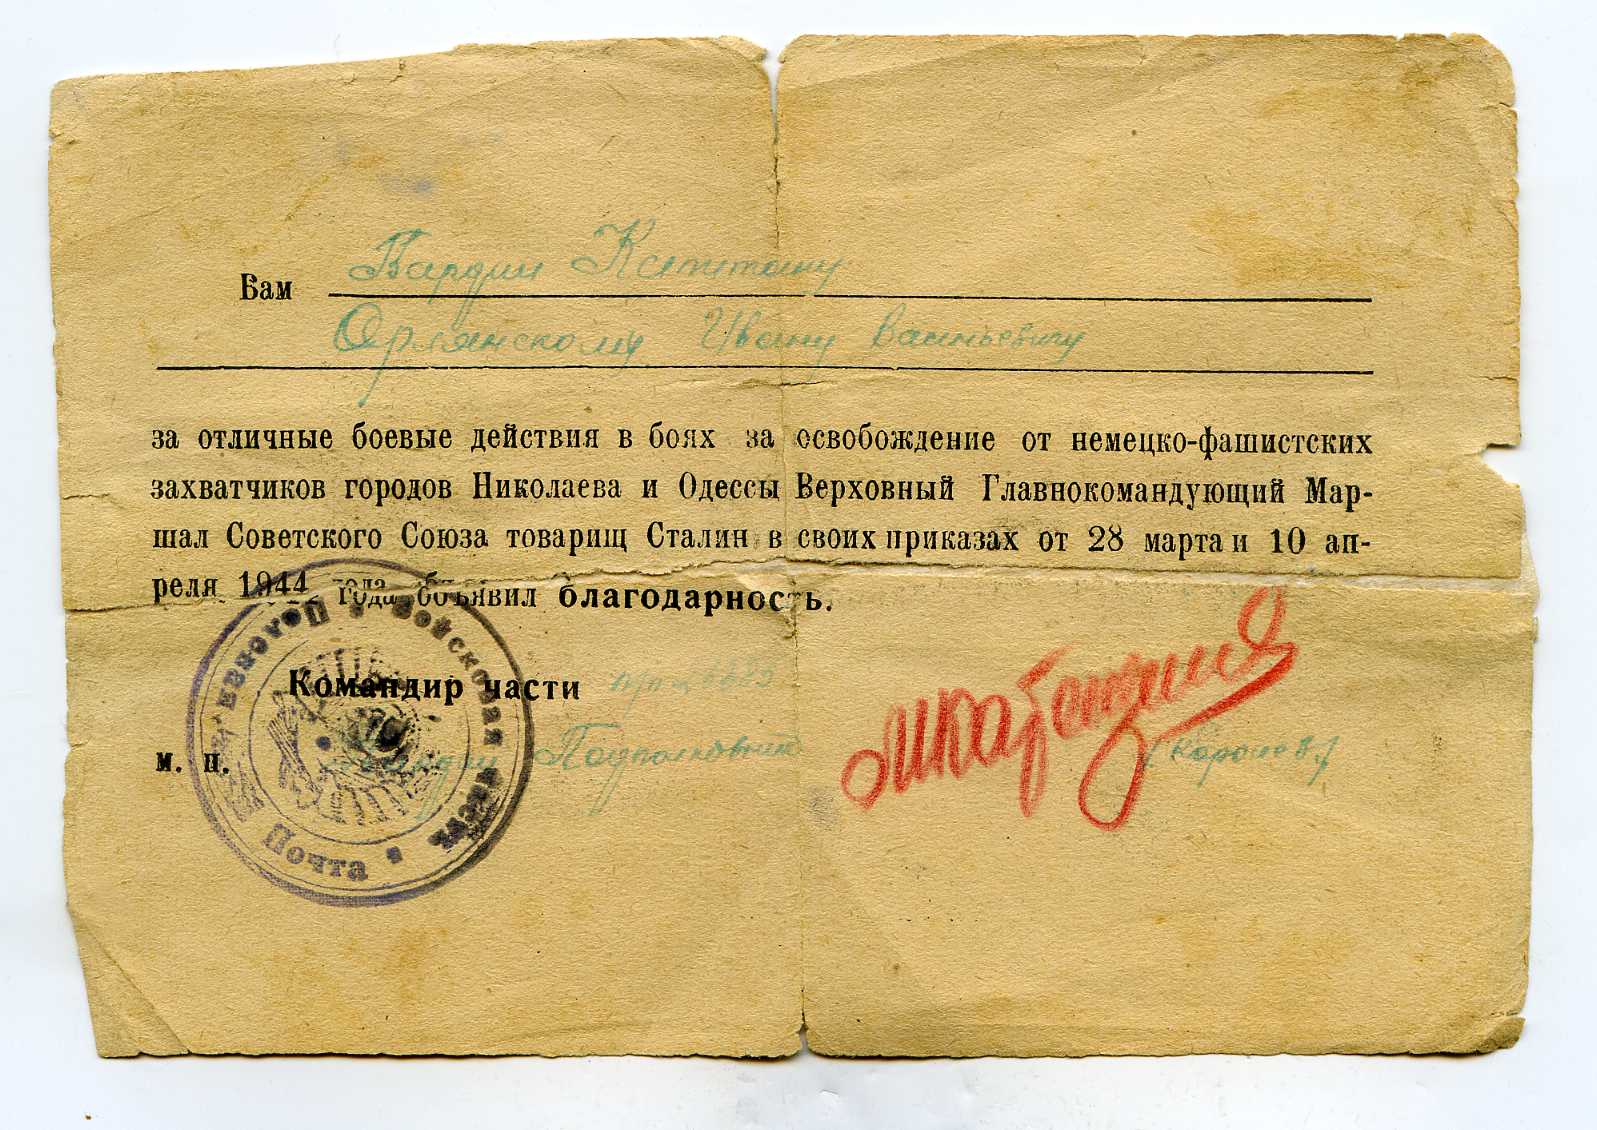 Вам Гвардии Капитану
Орлянскому Ивану Васильевичу
за отличные боевые действия в боях за освобождение от немецко-фашистских
захватчиков городов Николаева и Одессы Верховный Главнокомандующий Мар-
шал Советского Союза товарищ Сталин в своих приказах от 28 марта и 10 ап-
реля 1944 года объявил благодарность.
Командир части
м. п. Гвардии Подполковник
Войсковая часть Полевая Почта